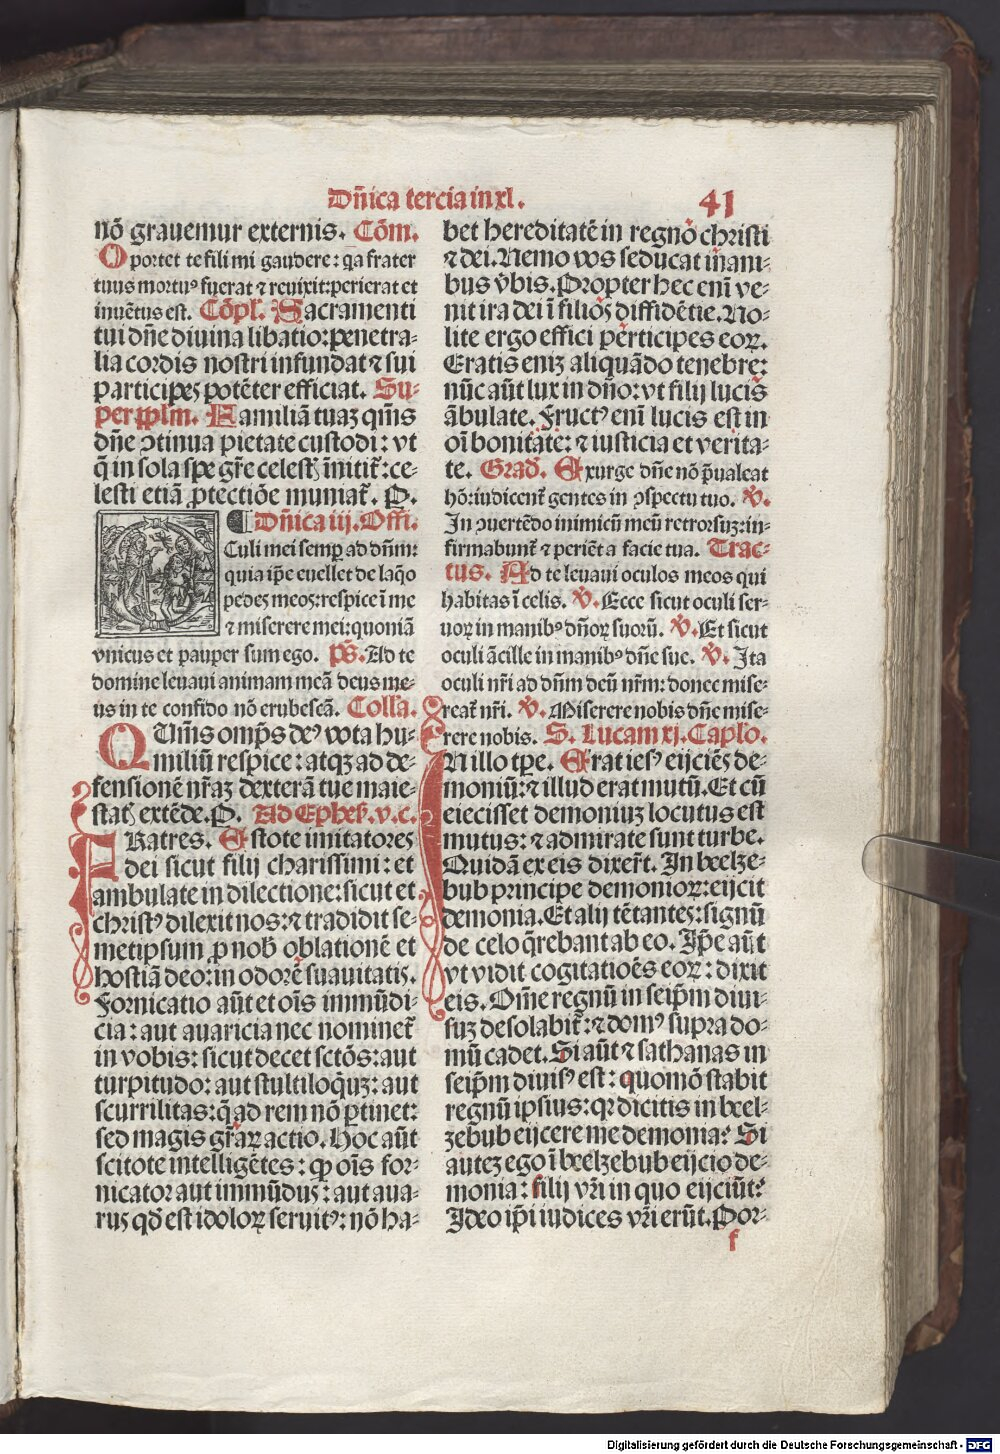 Dñica tercia in xl.
41
nõ grauemur externis. Cõm.
Oportet te fili mi gaudere: qa frater
tuus mortuꝰ fuerat ⁊ reuixit: perierat et
inuẽtus est. Cõpl. Sacramenti
tui dñe diuina libatio: penetra-
lia cordis nostri infundat ⁊ sui
participes potẽter efficiat. Su-
per pplm. Familiã tuaz qm̃s
dñe ↄtinua pietate custodi: vt
q̃ in sola spe gr̃e celestꝭ inniti͂t: ce-
lesti etiã ꝓtectiõe munia͂t. P.
¶ Dñica iij. Offi.
Culi mei semꝑ ad dñm:
quia ip̃e euellet de laq̃o
pedes meos: respice ĩ me
⁊ miserere mei: quoniã
vnicus et pauper sum ego. ps̃. Ad te
domine leuaui animam meã deus me-
us in te confido nõ erubescã. Coll'a.
QUm̃s omp̃s deꝰ vota hu-
miliũ respice: atqꝫ ad de-
fensionẽ nr̃az dexterã tue maie-
statꝭ extẽde. P. Ad Ephes̃. v. c.
FRatres. Estote imitatores
dei sicut filij charissimi: et
ambulate in dilectione: sicut et
christꝰ dilexit nos: ⁊ tradidit se-
metipsum ꝓ nob̃ oblationẽ et
hostiã deo: in odorẽ suauitatis.
Fornicatio aũt et oĩs immũdi-
cia: aut auaricia nec nomine͂t
in vobis: sicut decet sctõs: aut
turpitudo: aut stultiloq̃uꝫ: aut
scurrilitas: q̃ ad rem nõ ꝑtinet:
sed magis gr̃aꝝ actio. Hoc aũt
scitote intelligẽtes: ꝙ oĩs for-
nicator aut immũdus: aut aua-
rus qd̃ est idoloꝝ seruitꝰ: nõ ha-
bet hereditatẽ in regno christi
⁊ dei. Nemo vos seducat inani-
bus v̓bis. Propter hec enĩ ve-
nit ira dei ĩ filios diffidẽtie. No-
lite ergo effici participes eoꝝ.
Eratis eniꝫ aliquãdo tenebre:
nũc aũt lux in dño: vt filij lucis
ãbulate. Fructꝰ enĩ lucis est in
oĩ bonitate: ⁊ iusticia et verita-
te. Grad̃. Exurge dñe nõ p̃ualeat
hõ: iudicen͂t gentes in ↄspectu tuo. ℣.
In ↄuertẽdo inimicũ meũ retrorsuꝫ: in-
firmabun͂t ⁊ perien͂t a facie tua. Trac-
tus. Ad te leuaui oculos meos qui
habitas ĩ celis. ℣. Ecce sicut oculi ser-
uoꝝ in manibꝰ dñoꝝ suoꝝ. ℣. Et sicut
oculi ãcille in manibꝰ dñe sue. ℣. Ita
oculi nr̃i ad dñm deũ nr̃m: donec mise-
rea͂t nr̃i. ℣. Miserere nobis dñe mise-
rere nobis. S. Lucam xj. Capl'o.
IN illo tp̃e. Erat iesꝰ eijciẽs de-
moniũ: ⁊ illud erat mutũ. Et cũ
eiecisset demoniuꝫ locutus est
mutus: ⁊ admirate sunt turbe.
Quidã ex eis dixer̃t. In beelze-
bub principe demonioꝝ: eijcit
demonia. Et alij tẽtantes: signũ
de celo q̃rebant ab eo. Ip̃e aũt
vt vidit cogitatiões eoꝝ: dixit
eis. Om̃e regnũ in seip̃m diui-
suꝫ desolabi͂t: ⁊ domꝰ supra do-
mũ cadet. Si aũt ⁊ sathanas in
seip̃m diuisꝰ est: quomõ stabit
regnũ ipsius: qꝛ dicitis in beel-
zebub eijcere me demonia? Si
autez ego ĩ beelzebub eijcio de-
monia: filij vr̃i in quo eijciũt?
Ideo ip̃i iudices vr̃i erũt. Por-
f
Digitalisierung gefördert durch die Deutsche Forschungsgemeinschaft - DFG